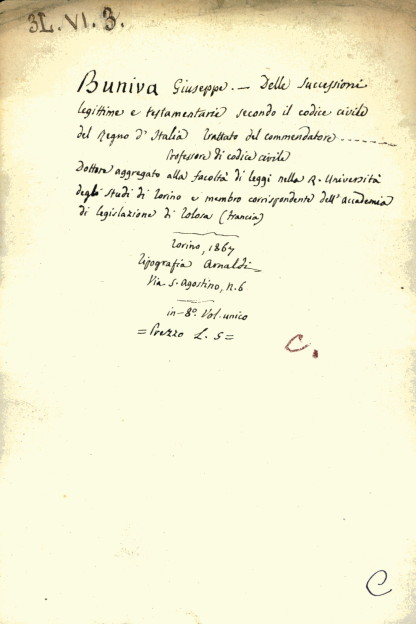 3L. VI. 3.
Buniva Giuseppe. — Delle Successioni
legittime e testamentarie secondo il codice civile
del Regno d'Italia Trattato del commendatore -----
Professore di codice civile
Dottore aggregato alla facoltà di leggi nella R. Università
degli Studi di Torino e membro corrispondente dell'Accademia
di legislazione di Tolosa (Francia)
Torino, 1867
Tipografia Arnaldi
Via S. Agostino, N. 6
in-8°. Vol. unico
= Prezzo L. 5 =
C.
C